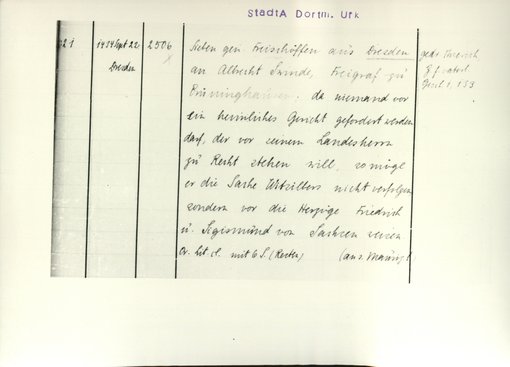 StadtA Dortm. Urk
221
1434 Sept 22
Dresden
2506
Sieben gen. Freischöffen aus Dresden
an Albrecht Swinde, Freigraf zu
Brüninghausen: da niemand vor
ein heimliches Gericht gefordert werden
darf, der vor seinem Landesherrn
zu Recht stehen will, so möge
er die Sache nicht verfolgen
sondern vor die Herzöge Friedrich
u. Sigismund von Sachsen
Or. lit. cl. mit 6 S. (Resten)